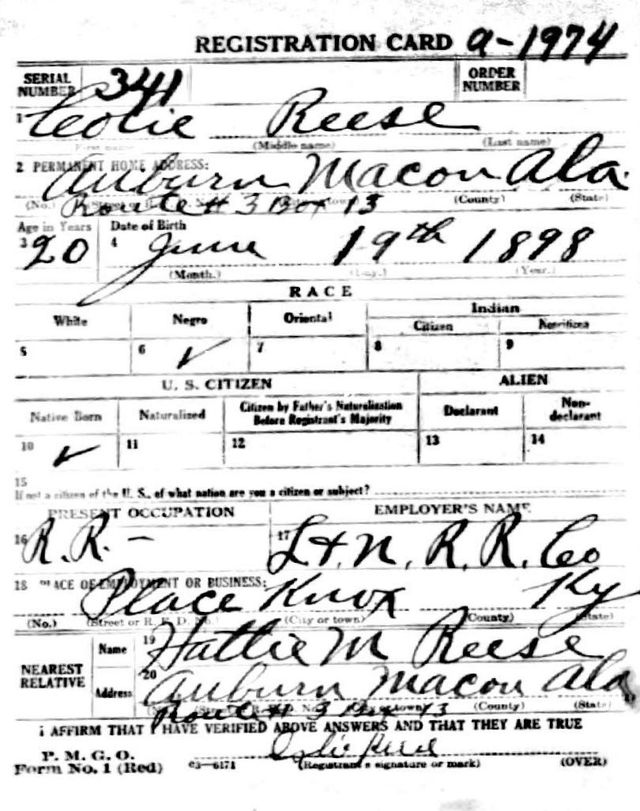 REGISTRATION CARD a-1974
SERIAL NUMBER 341 ORDER NUMBER
1 Colie Reese
(Middle name) (Last name)
2 PERMANENT HOME ADDRESS:
Auburn Macon Ala.
(No.) (County) (State)
Route # 3 Box 13
Age in Years Date of Birth
3 20 4 June 19th 1898
(Month.) (Day.) (Year.)
RACE
White Negro Oriental Indian
Citizen Noncitizen
5 6 ✓ 7 8 9
U. S. CITIZEN ALIEN
Native Born Naturalized Citizen by Father's Naturalization Before Registrant's Majority Declarant Non-declarant
10 ✓ 11 12 13 14
15
If not a citizen of the U. S., of what nation are you a citizen or subject?
PRESENT OCCUPATION EMPLOYER'S NAME
16 R. R. – 17 L & N. R. R. Co
18 PLACE OF EMPLOYMENT OR BUSINESS:
Place Knox Ky
(No.) (Street or R. F. D. No.) (City or town) (County) (State)
NEAREST RELATIVE
Name 19 Hattie M Reese
Address 20 Auburn Macon Ala
(County) (State)
Route # 3 Box 13
I AFFIRM THAT I HAVE VERIFIED ABOVE ANSWERS AND THAT THEY ARE TRUE
P. M. G. O.
Form No. 1 (Red) 03-6171 (Registrant's signature or mark) (OVER)